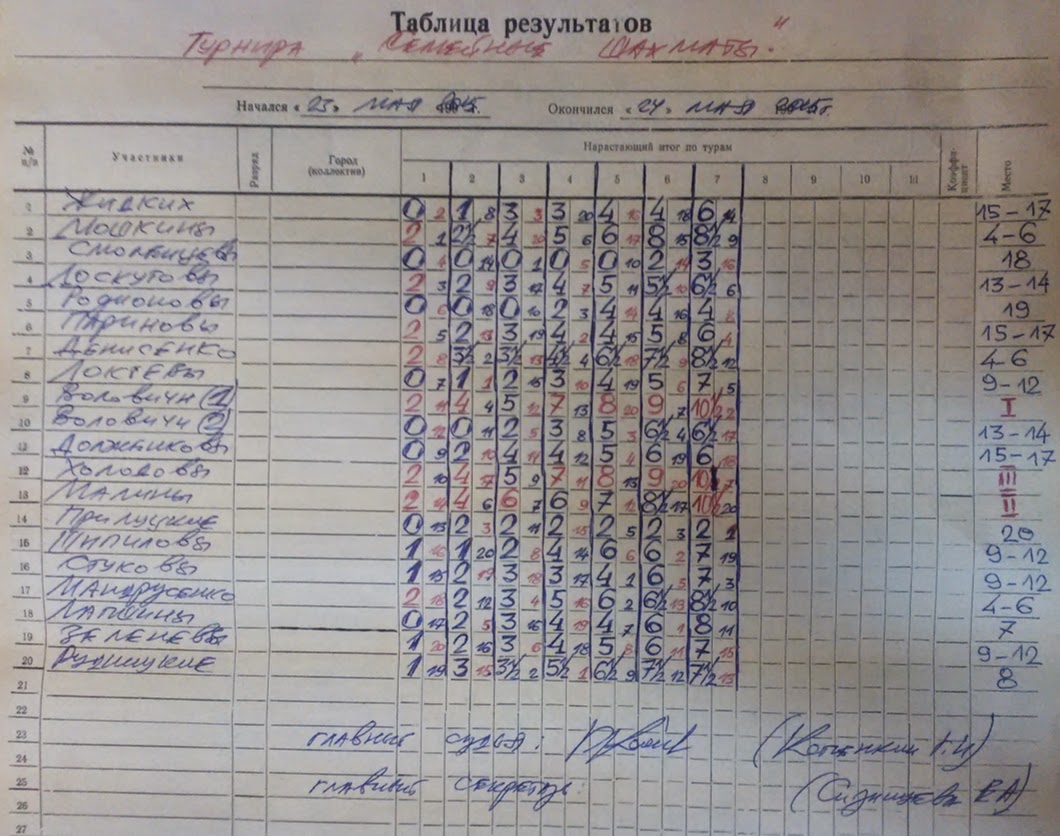 Таблица результатов
Турнира „Семейные шахматы."
Начался « 23 » мая 2015 г. Окончился « 24 » мая 2015 г.
№ п/п Участники Разряд Город (коллектив) Нарастающий итог по турам Коэффициент Место
1 2 3 4 5 6 7 8 9 10 11
1 Жидких 0 2 1 8 3 3 3 20 4 16 4 18 6 14 15-17
2 Мошкины 2 1 2½ 7 4 20 5 6 6 17 8 15 8½ 9 4-6
3 0 4 0 14 0 1 0 5 0 10 2 14 3 16 18
4 Лоскутовы 2 3 2 9 3 17 4 7 5 11 5½ 10 6½ 6 13-14
5 Родионовы 0 6 0 18 0 10 2 3 4 14 4 16 4 19
6 Париновы 2 5 2 13 3 19 4 2 4 15 5 8 6 4 15-17
7 Денисенко 2 8 3½ 2 3½ 13 4½ 4 6½ 18 7½ 9 8½ 12 4-6
8 Локтевы 0 7 1 1 2 15 3 10 4 19 5 6 7 5 9-12
9 Воловичи (1) 2 11 4 4 5 12 7 13 8 20 9 7 10½ 2 I
10 Воловичи (2) 0 12 0 11 2 5 3 8 5 3 6½ 4 6½ 17 13-14
11 Должиковы 0 9 2 10 4 14 4 12 5 4 6 19 6 18 15-17
12 Холодовы 2 10 4 17 5 9 7 11 8 13 9 20 10 7 III
13 Малины 2 14 4 6 6 7 6 9 7 12 8½ 17 10½ 20 II
14 Прилуцкие 0 13 2 3 2 11 2 15 2 5 2 3 2 1 20
15 Пипиловы 1 16 1 20 2 8 4 14 6 6 6 2 7 19 9-12
16 Стуковы 1 15 2 19 3 18 3 17 4 1 6 5 7 3 9-12
17 Мандрусенко 2 18 2 12 3 4 5 16 6 2 6½ 13 8½ 10 4-6
18 Лапшины 0 17 2 5 3 16 4 19 4 7 6 1 8 11 7
19 Зеленевы 1 20 2 16 3 6 4 18 5 8 6 11 7 15 9-12
20 Рудницкие 1 19 3 15 3½ 2 5½ 1 6½ 9 7½ 12 7½ 13 8
21
22
23 главный судья:
24
25 главный секретарь
26
27